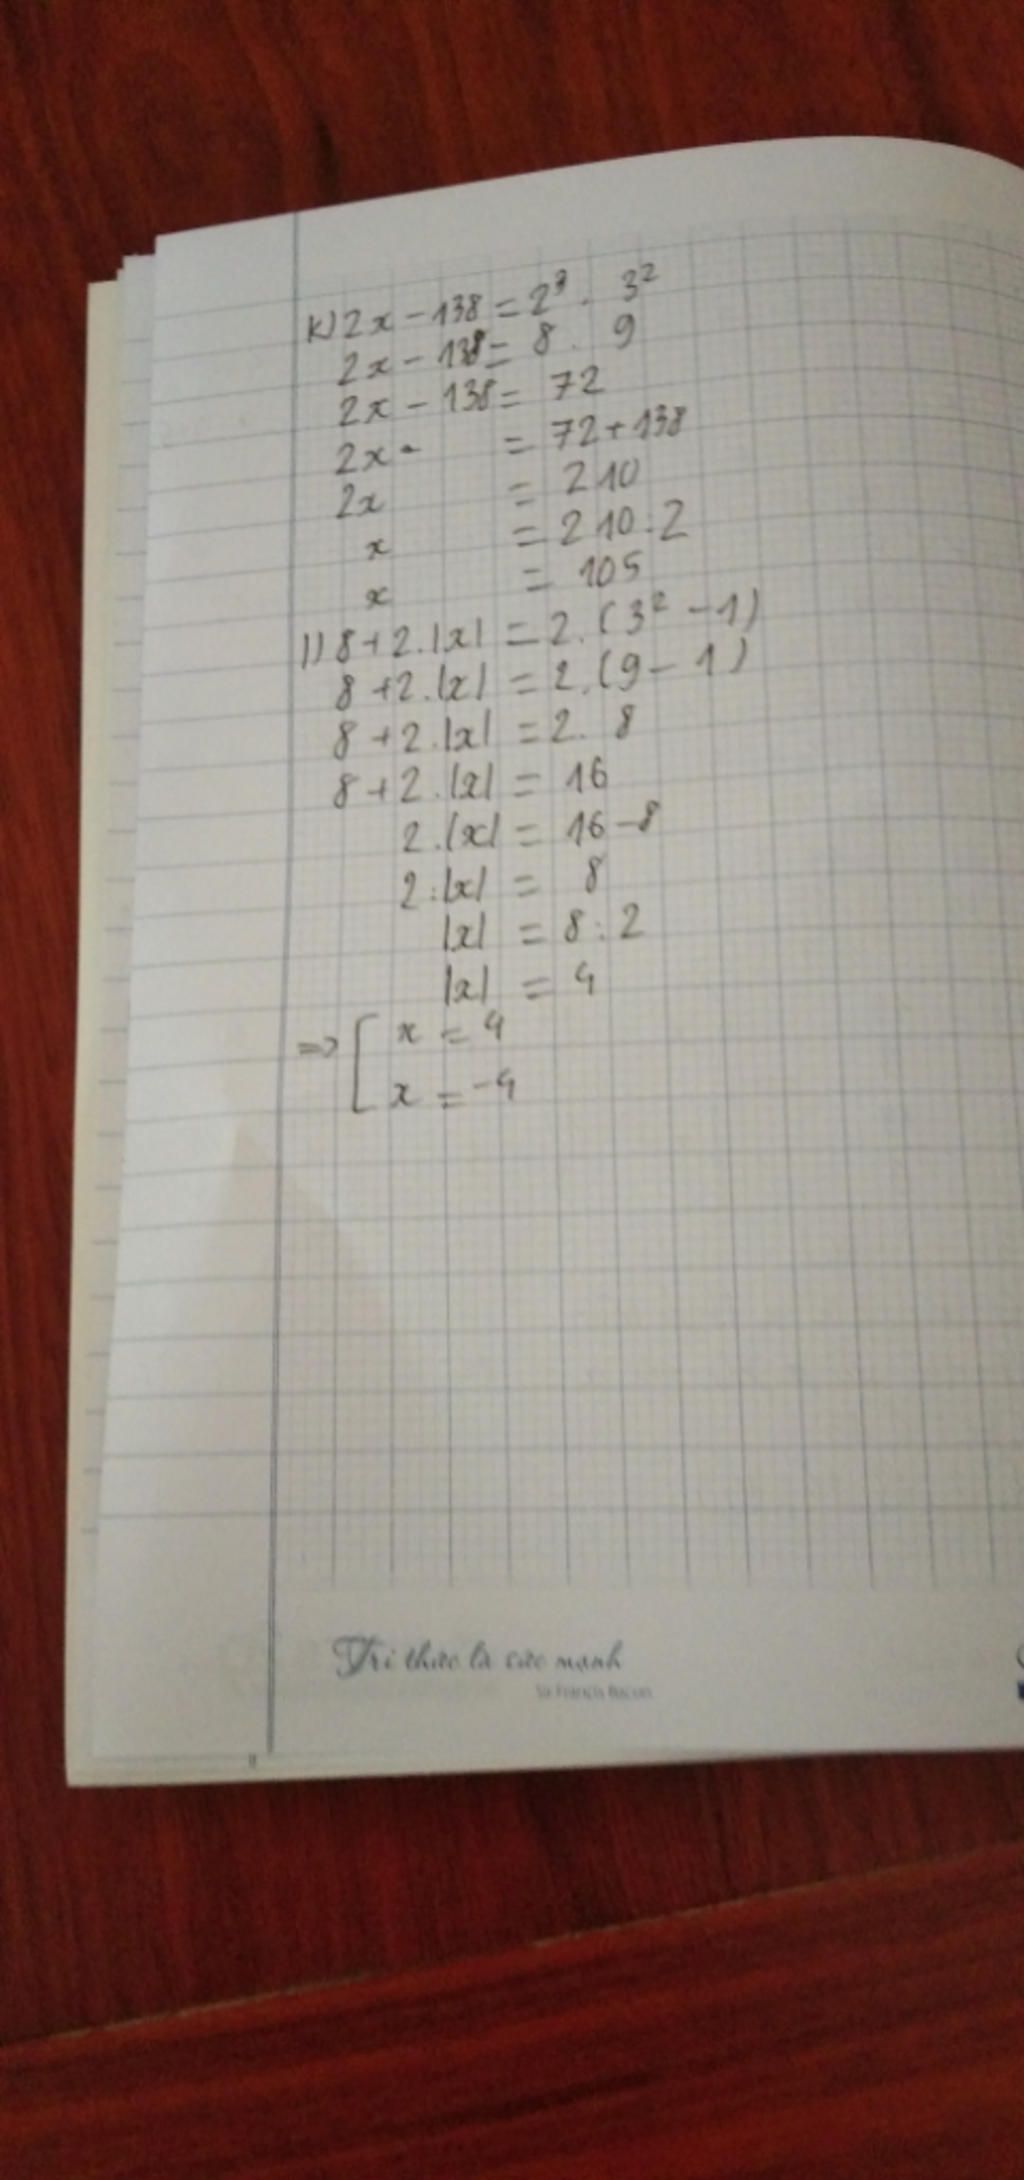 k) 2x - 138 = 2³ . 3²
2x - 138 = 8 . 9
2x - 138 = 72
2x - = 72 + 138
2x = 210
x = 210 . 2
x = 105
l) 8 + 2.|x| = 2.(3² - 1)
8 + 2.|x| = 2.(9 - 1)
8 + 2.|x| = 2. 8
8 + 2.|x| = 16
2.|x| = 16 - 8
2:|x| = 8
|x| = 8 : 2
|x| = 4
=> [ x = 4
x = -4
Tri thức là sức mạnh
Sir Francis Bacon